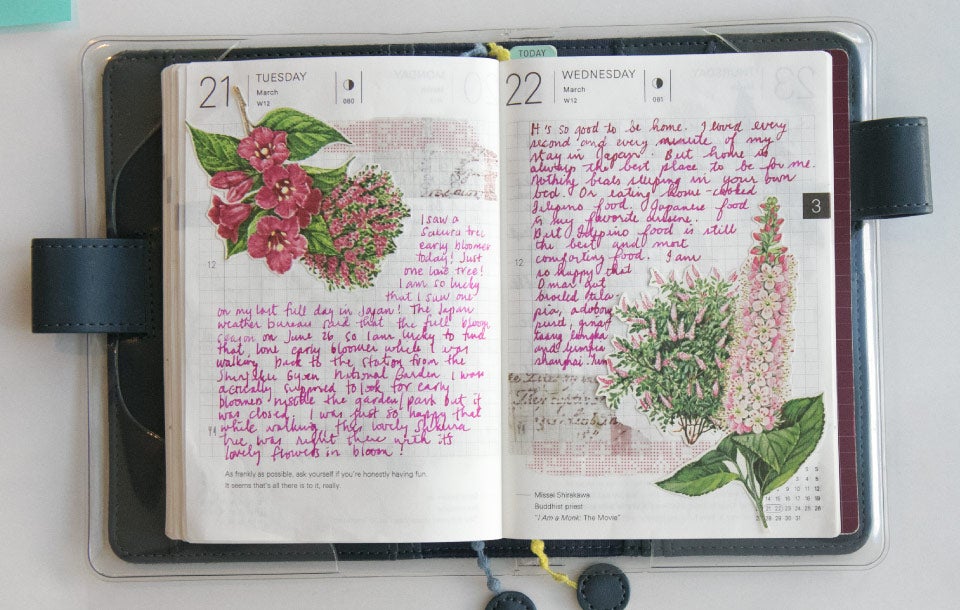 21
TUESDAY
March
W12
080
12
I saw a
Sakura tree
early bloomer
today! Just
one lone tree!
I am so lucky
that I saw one
on my last full day in Japan! The Japan
weather bureau said that the full bloom
season on June 26 so I am lucky to find
that lone early bloomer while I was
walking back to the station from the
Shinjuku Gyoen National Garden. I was
actually supposed to look for early
bloomers inside the garden/park but it
was closed. I was just so happy that
while walking, this lovely Sakura
tree was right there with its
lovely flowers in bloom!
As frankly as possible, ask yourself if you're honestly having fun.
It seems that's all there is to it, really.
TODAY
22
WEDNESDAY
March
W12
081
It's so good to be home. I loved every
second and every minute of my
stay in Japan. But home is
always the best place to be for me.
Nothing beats sleeping in your own
bed. Or eating home-cooked
Filipino food. Japanese food
is my favorite cuisine.
But Filipino food is still
the best and most
comforting food. I am
so happy that
Omar got
broiled tila
pia, adobong
pusit,
and lumpia
shanghai. Yum
3
12
Missei Shirakawa
Buddhist priest
"I Am a Monk: The Movie"